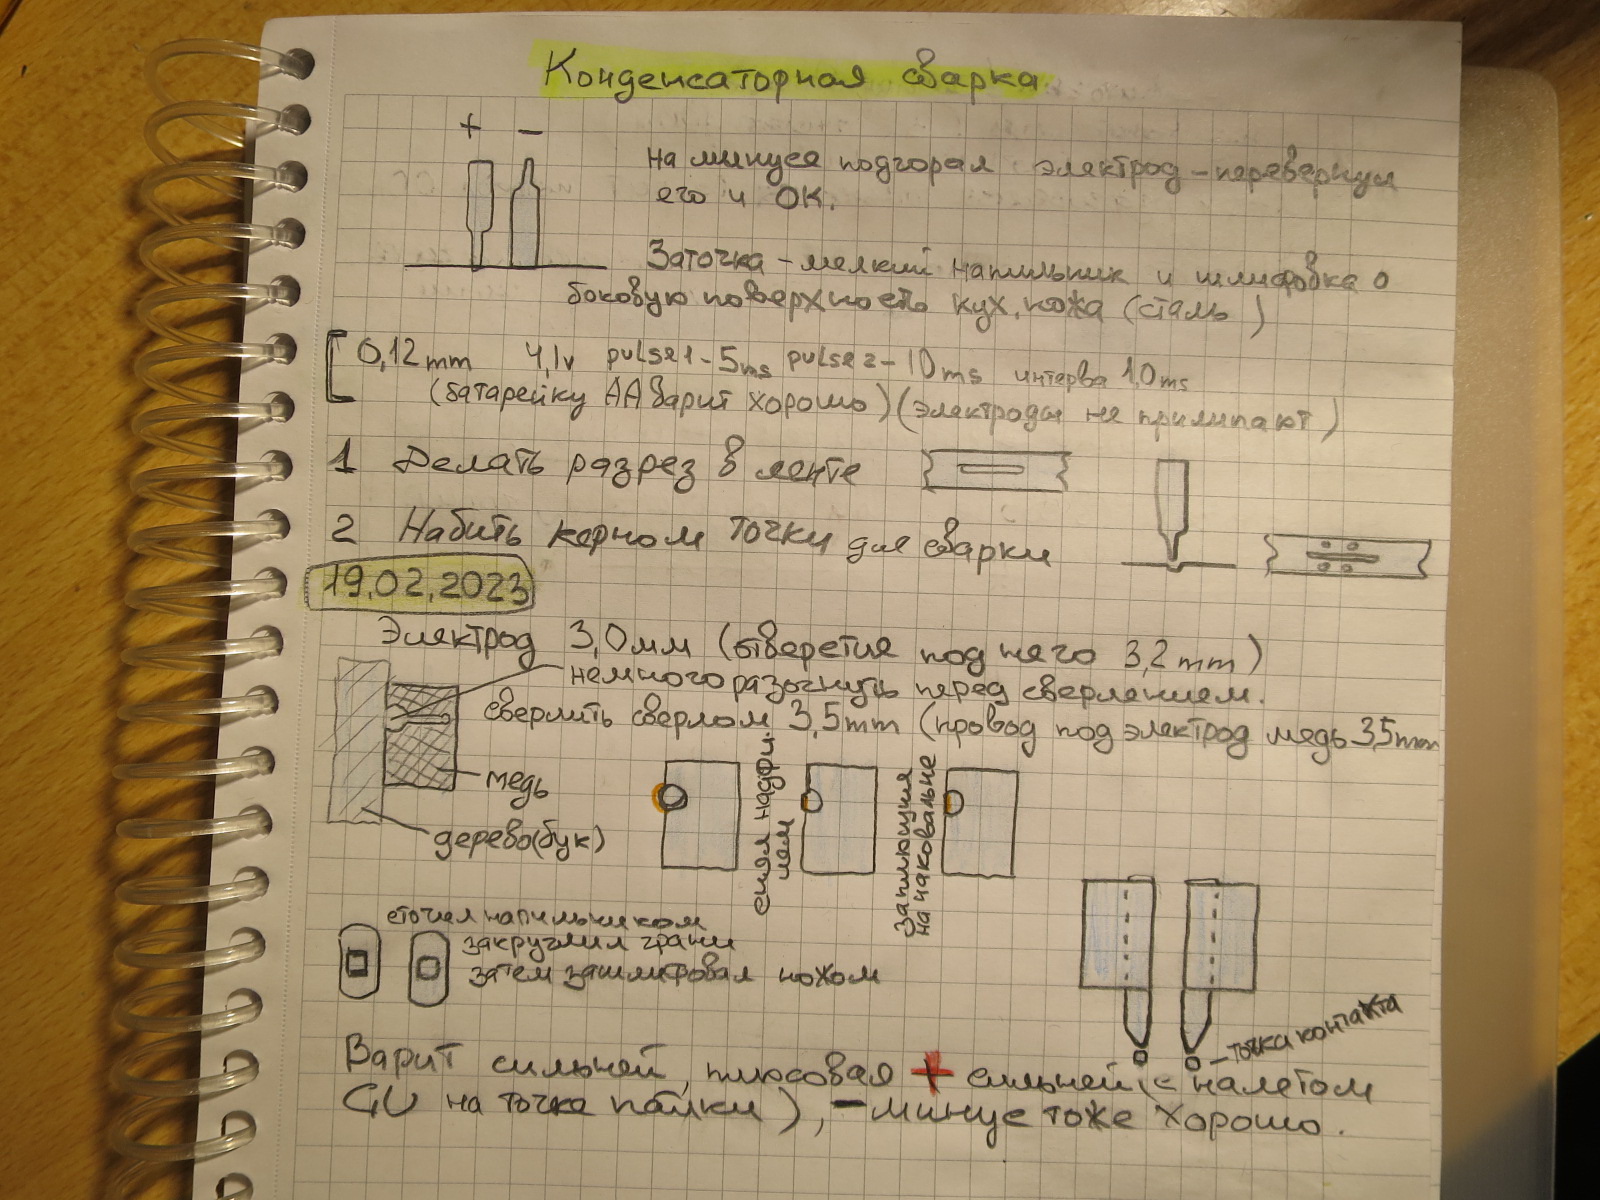 Конденсаторная сварка
+ −
на минусе подгорал электрод - перевернул
его и ОК.
Заточка - мелкий напильник и шлифовка о
боковую поверхность кух. ножа (сталь)
0,12mm 4,1v pulse1 - 5ms pulse2 - 10ms интерва 10ms
(батарейку АА варит хорошо) (электроды не прилипают)
1 Делать разрез в ленте
2 Набить керном точки для сварки
19.02.2023
Электрод 3,0мм (отверстия под него 3,2mm)
немного разогнуть перед сверлением.
сверлить сверлом 3,5mm (провод под электрод медь 3,5mm
медь
дерево(бук)
снял надфи
лем
заплющил
на наковальне
сточил напильником
закруглил грани
затем зашлифовал ножом
- точка контакта
Варит сильней, плюсовая + сильней (с налетом
CU на точка пайки), - минус тоже хорошо.